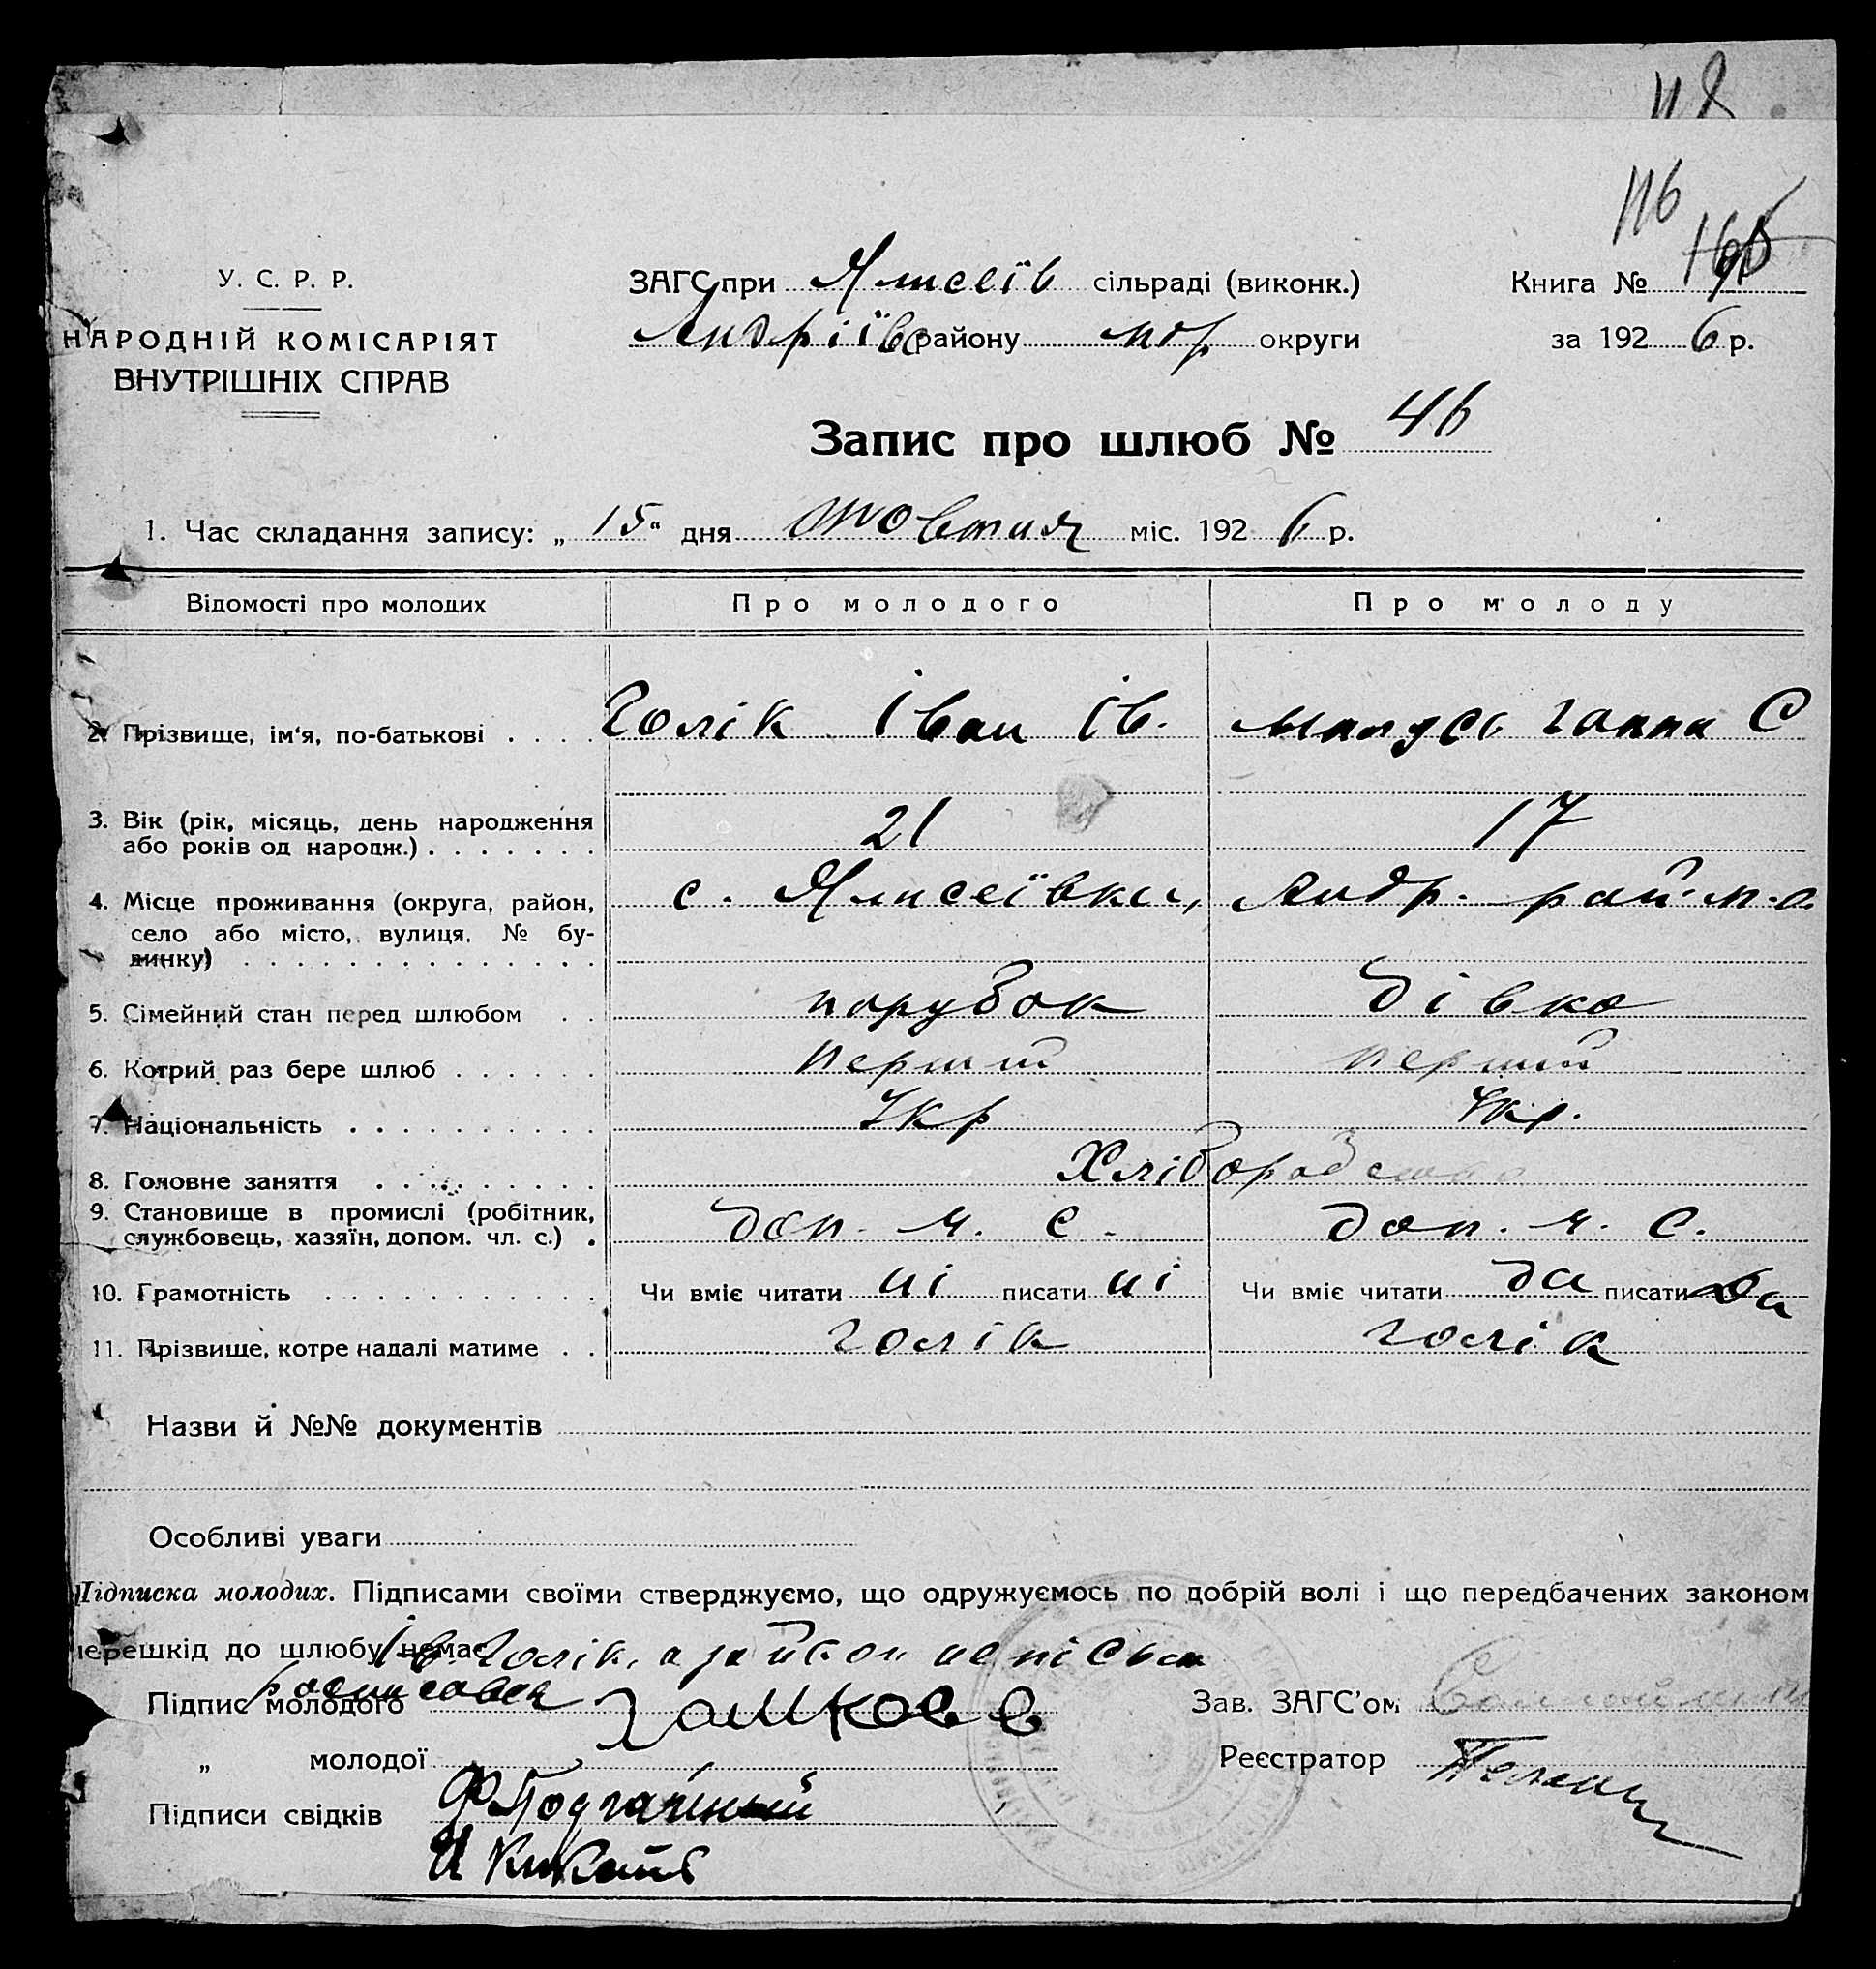 118
116
У. С. Р. Р.
НАРОДНІЙ КОМІСАРІЯТ
ВНУТРІШНІХ СПРАВ
ЗАГС при Ялисеїв сільраді (виконк.)
Андріївс району округи
Книга №
за 1926 р.
Запис про шлюб № 46
1. Час складання запису: „15“ дня жовтня міс. 1926 р.
Відомості про молодих Про молодого Про молоду
2. Прізвище, ім'я, по-батькові . . . . Голік Іван Ів. Ганна С
3. Вік (рік, місяць, день народження
або років од народж.) . . . . . . . 21 17
4. Місце проживання (округа, район, с. Ялисеївка, Андр. рай. м.о.
село або місто, вулиця, № бу-
динку) . . . . . . . . . . . . . .
5. Сімейний стан перед шлюбом . . парубок дівка
6. Котрий раз бере шлюб . . . . . . перший перший
7. Національність . . . . . . . . . . Укр Укр.
8. Головне заняття . . . . . . . . . Хліборобство
9. Становище в промислі (робітник,
службовець, хазяїн, допом. чл. с.) . доп. ч. с. доп. ч. с.
10. Грамотність . . . . . . . . . . . Чи вміє читати ні писати ні Чи вміє читати да писати да
11. Прізвище, котре надалі матиме . . Голік Голік
Назви й №№ документів
Особливі уваги
Підписка молодих. Підписами своїми стверджуємо, що одружуємось по добрій волі і що передбачених законом
перешкід до шлюбу немає
Ів Голік, а за
Підпис молодого
Зав. ЗАГС'ом
„ молодої
Реєстратор
Підписи свідків